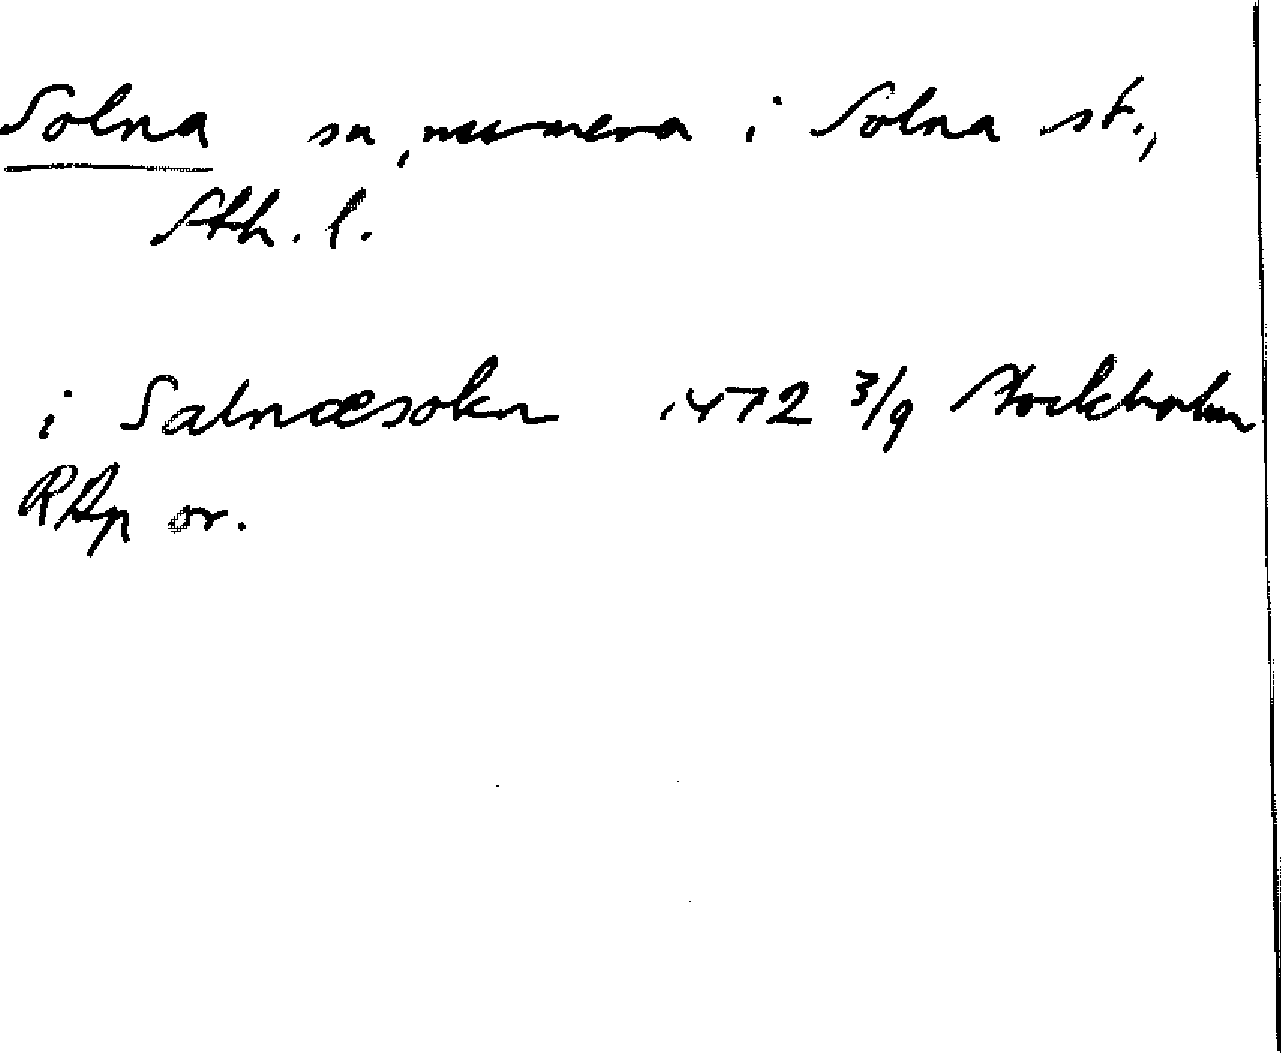 Solna sn, numera i Solna st.,
Sth. l.
i Salnæsokn 1472 3/9 Stockholm
RAp or.